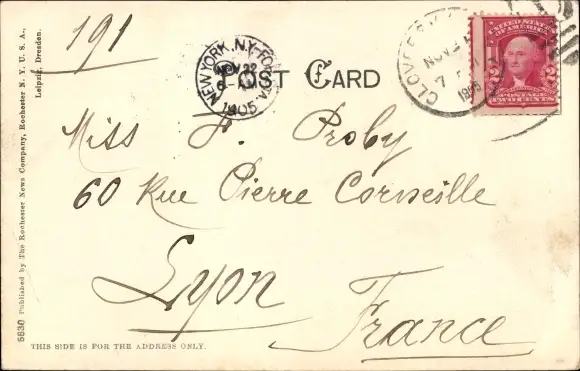 191
NEW YORK, N.Y.
NOV 22
1905
POST CARD
NOV 2
7
1905
UNITED STATES
OF AMERICA
2 2
POSTAGE
TWO CENTS
Miss J. Proby
60 Rue Pierre Corneille
Lyon
France
THIS SIDE IS FOR THE ADDRESS ONLY.
5630 Published by The Rochester News Company, Rochester N. Y. U. S. A.,
Leipzig, Dresden.